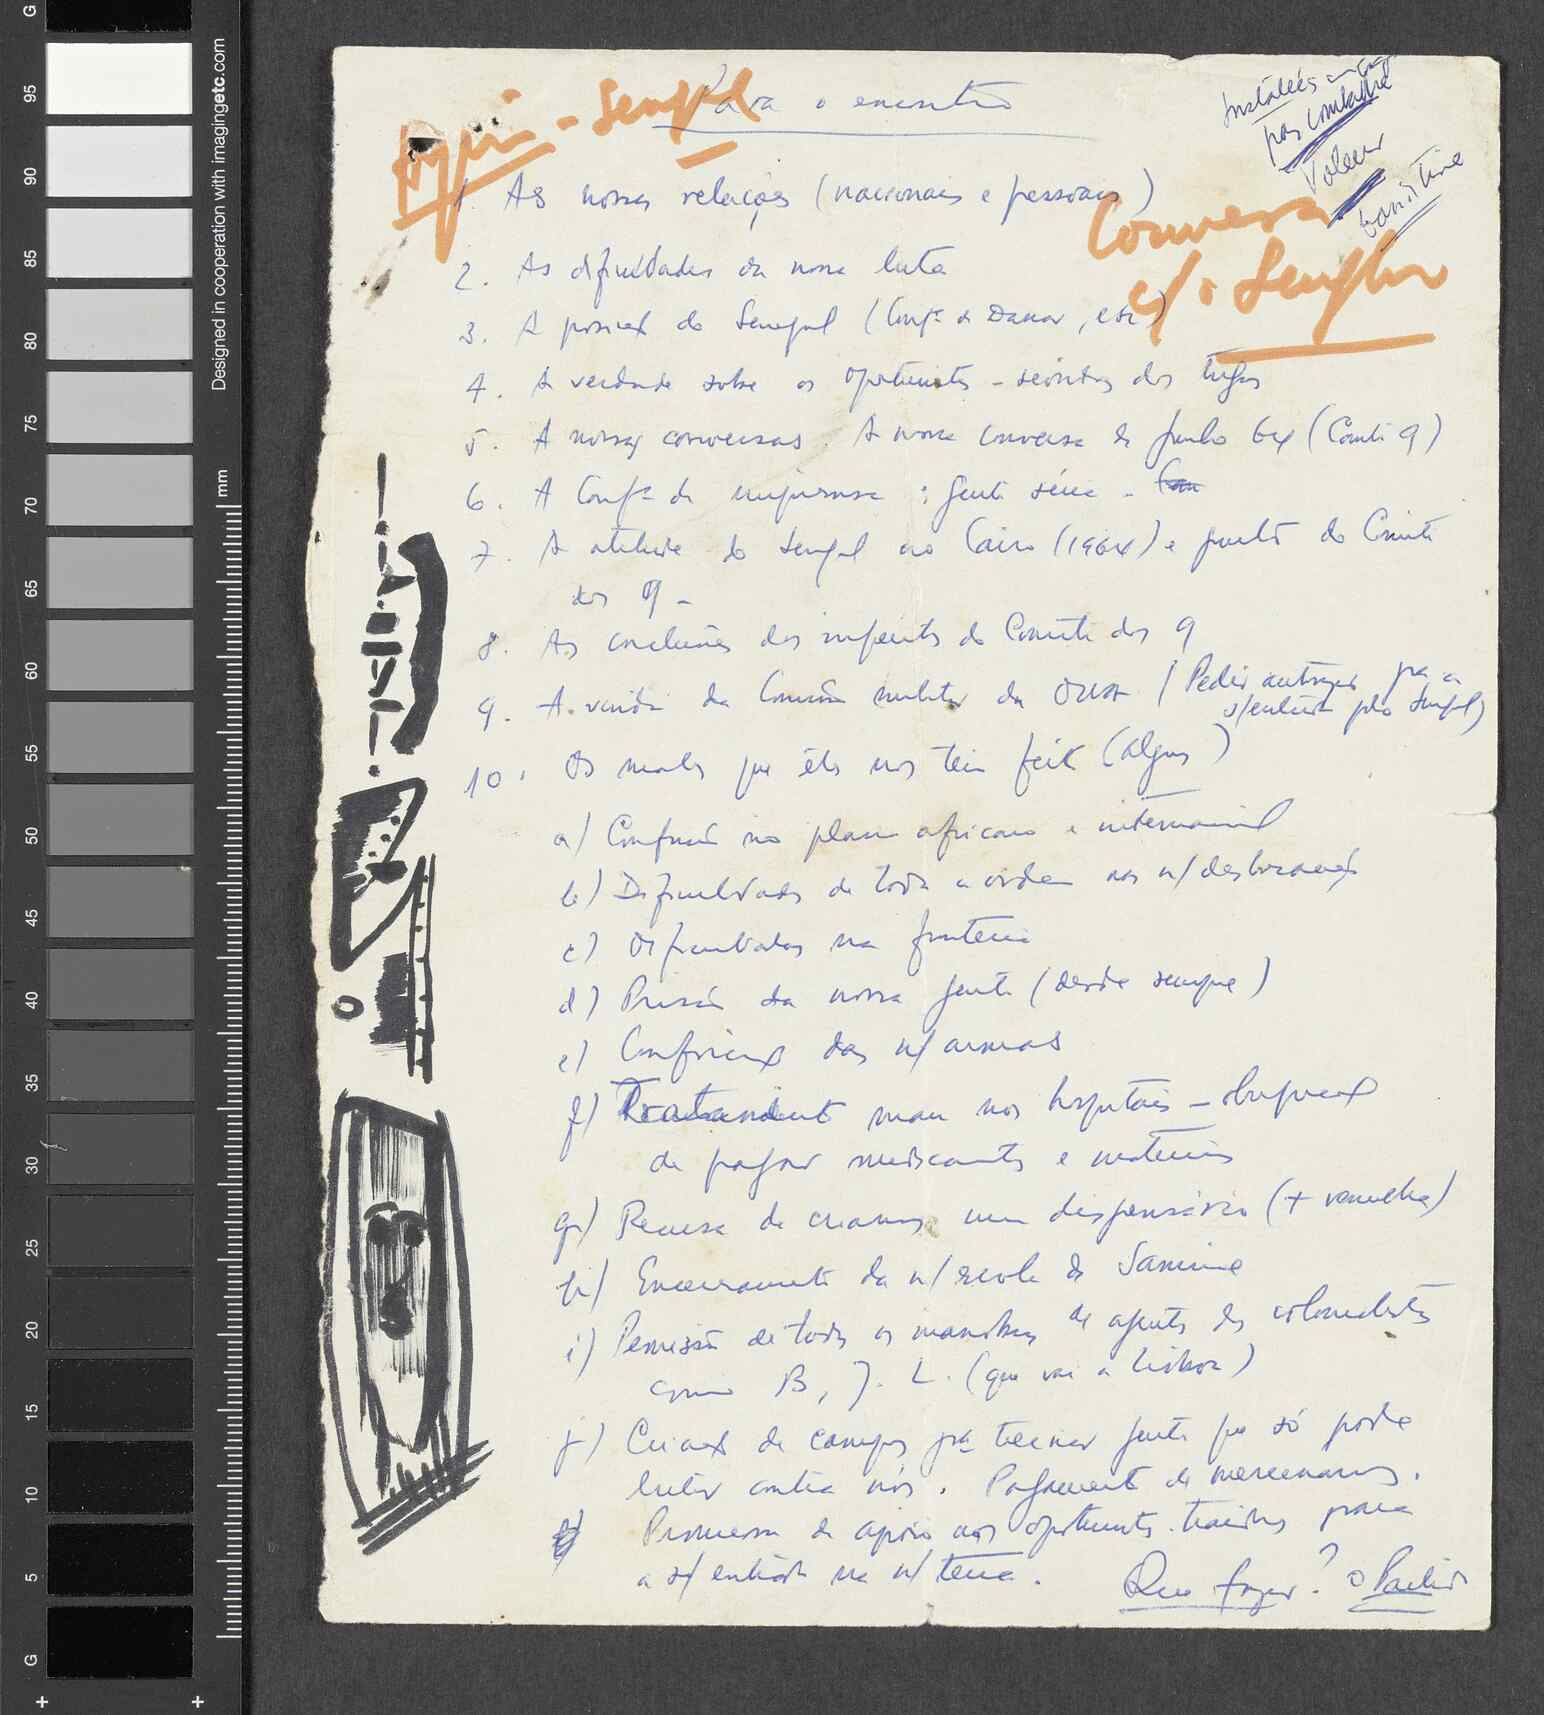 Designed in cooperation with imagingetc.com
mm
G
95
90
85
80
75
70
65
60
55
50
45
40
35
30
25
20
15
10
5
G
Senegal
Para o encontro
Installés
pas combattre
Valeur
Conversa
c/ o Senghor
1. As nossas relações (nacionais e pessoais)
2. As dificuldades da nossa luta
3. A posição do Senegal (Confª de Dakar, etc)
4. A verdade sobre os oportunistas - serventes dos tugas
5. A nossas conversas. A nossa conversa de Junho 64 (Comité 9)
6. A Confª de imprensa: gente séria -
7. A atitude do Senegal no Cairo (1964) e junto do Comité
dos 9 -
8. As conclusões dos inquéritos do Comité dos 9
9. A vinda da Comissão militar da OUA (Pedir autorização pª a
s/ entrada pelo Senegal)
10. Os males que êles nos tem feito (alguns)
a) Confusão no plano africano e internacional
b) Dificuldades de toda a ordem nas n/ deslocações
c) Dificuldades na fronteira
d) Prisão da nossa gente (desde sempre)
e) Confiscação das n/ armas
f) Tratamento mau nos hospitais - obrigação
de pagar medicamentos e materiais
g) Recusa de criarmos um dispensário (+ vermelha)
h) Encerramento da n/ escola de Samine
i) Permissão de todas as manobras de agentes dos colonialistas
como B, J. L. (que vai a Lisboa)
j) Criação de campos pª treinar gente que só pode
lutar contra nós. Pagamento de mercenários.
Promessa de apoio aos oportunistas traidores para
a s/ entrada na n/ terra.
Que fazer?